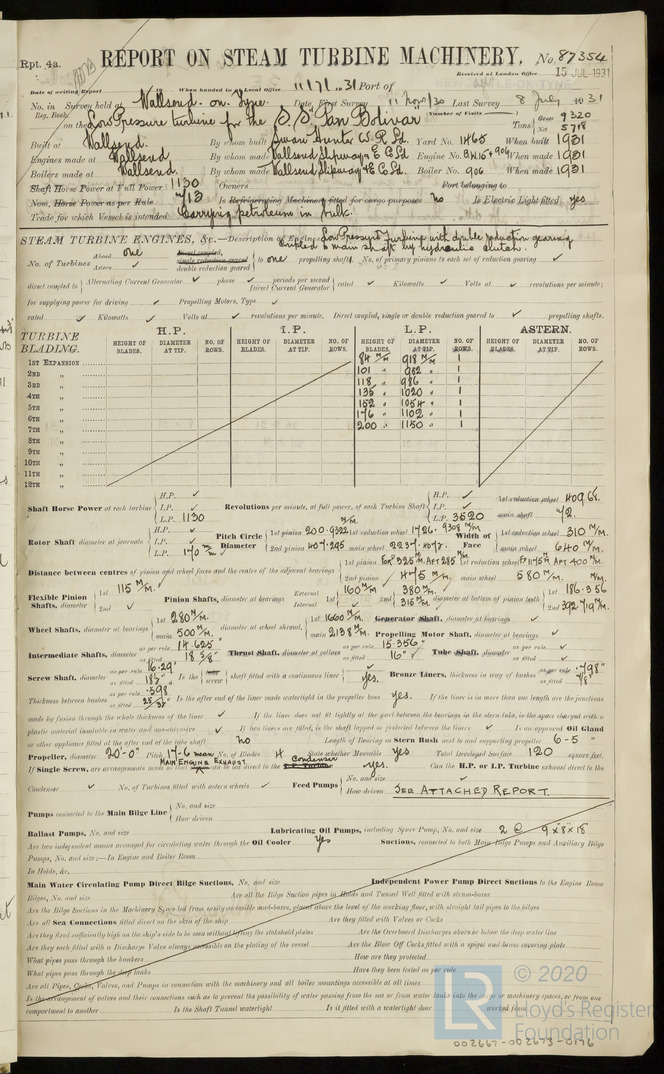 Rpt. 4a.
REPORT ON STEAM TURBINE MACHINERY. No. 87354
Received at London Office 15 JUL 1931
Date of writing Report When handed in at Local Office 11/7/1931 Port of
No. in Survey held at Wallsend-on-Tyne. Date, First Survey 11 Nov/30 Last Survey 8 July 1931
Reg. Book. (Number of Visits )
on the Low Pressure turbine for the S.S. San Bolivar Tons Gross 9320 Net 5718
Built at Wallsend. By whom built Swan Hunter W.R. Ld. Yard No. 1465 When built 1931
Engines made at Wallsend By whom made Wallsend Slipway & E Co Ld. Engine No. When made 1931
Boilers made at Wallsend. By whom made Wallsend Slipway & E Co Ld. Boiler No. 906 When made 1931
Shaft Horse Power at Full Power 1130 Owners Port belonging to
Nom. Horse Power as per Rule Is Refrigerating Machinery fitted for cargo purposes No Is Electric Light fitted yes
Trade for which Vessel is intended Carrying petroleum in bulk.
STEAM TURBINE ENGINES, &c.—Description of Engines Low Pressure Turbine with double reduction gearing
coupled to main shaft by hydraulic clutch.
No. of Turbines Ahead one Astern Direct coupled, single reduction geared double reduction geared to one propelling shafts. No. of primary pinions to each set of reduction gearing
direct coupled to Alternating Current Generator phase periods per second Direct Current Generator rated Kilowatts Volts at revolutions per minute;
for supplying power for driving Propelling Motors, Type
rated Kilowatts Volts at revolutions per minute. Direct coupled, single or double reduction geared to propelling shafts.
TURBINE BLADING. H.P. I.P. L.P. ASTERN.
HEIGHT OF BLADES. DIAMETER AT TIP. NO. OF ROWS. HEIGHT OF BLADES. DIAMETER AT TIP. NO. OF ROWS. HEIGHT OF BLADES. DIAMETER AT TIP. NO. OF ROWS. HEIGHT OF BLADES. DIAMETER AT TIP. NO. OF ROWS.
1ST EXPANSION 84 M/M 918 M/M 1
2ND " 101 " 952 " 1
3RD " 118 " 986 " 1
4TH " 135 " 1020 " 1
5TH " 152 " 1054 " 1
6TH " 176 " 1102 " 1
7TH " 200 " 1150 " 1
8TH "
9TH "
10TH "
11TH "
12TH "
Shaft Horse Power at each turbine H.P. I.P. L.P. 1130 Revolutions per minute, at full power, of each Turbine Shaft H.P. I.P. L.P. 3520 1st reduction wheel 409.65. main shaft 72.
Rotor Shaft diameter at journals H.P. I.P. L.P. 170 m/m Pitch Circle Diameter 1st pinion 200.9322 1st reduction wheel 1726.9308 M/M 2nd pinion 407.295 main wheel Width of Face 1st reduction wheel 310 M/M. main wheel 640 M/M.
Distance between centres of pinion and wheel faces and the centre of the adjacent bearings 1st pinion 2nd pinion 475 M/M. 1st reduction wheel main wheel 580 M/M.
Flexible Pinion Shafts, diameter 1st 115 M/M. 2nd Pinion Shafts, diameter at bearings External Internal 1st 160 M/M 2nd 380 M/M. 315 M/M. diameter at bottom of pinion teeth 1st 186.356 2nd 392.719 M/M.
Wheel Shafts, diameter at bearings 1st 280 M/M. main 500 M/M. diameter at wheel shroud, 1st 1660 M/M. main 2138 M/M. Generator Shaft, diameter at bearings Propelling Motor Shaft, diameter at bearings
Intermediate Shafts, diameter as per rule 14.625" as fitted 18 5/8" Thrust Shaft, diameter at collars as per rule 15.356" as fitted 16" Tube Shaft, diameter as per rule as fitted
Screw Shaft, diameter as per rule 16.29" as fitted Is the tube screw shaft fitted with a continuous liner yes. Bronze Liners, thickness in way of bushes as per rule .798" as fitted 7/8"
Thickness between bushes as per rule .598 as fitted 25/32" Is the after end of the liner made watertight in the propeller boss yes. If the liner is in more than one length are the junctions
made by fusion through the whole thickness of the liner If the liner does not fit tightly at the part between the bearings in the stern tube, is the space charged with a
plastic material insoluble in water and non-corrosive If two liners are fitted, is the shaft lapped or protected between the liners Is an approved Oil Gland
or other appliance fitted at the after end of the tube shaft No Length of Bearing in Stern Bush next to and supporting propeller 6-5"
Propeller, diameter 20'-0" Pitch 17-6 mean No. of Blades 4 State whether Moveable yes Total Developed Surface 120 square feet.
If Single Screw, are arrangements made so that MAIN ENGINE EXHAUST can be led direct to the Condenser yes. Can the H.P. or I.P. Turbine exhaust direct to the
Condenser No. of Turbines fitted with astern wheels Feed Pumps No. and size How driven SEE ATTACHED REPORT.
Pumps connected to the Main Bilge Line No. and size How driven
Ballast Pumps, No. and size Lubricating Oil Pumps, including Spare Pump, No. and size 2 @ 9"x8"x18"
Are two independent means arranged for circulating water through the Oil Cooler Yes Suctions, connected to both Main Bilge Pumps and Auxiliary Bilge
Pumps, No. and size:—In Engine and Boiler Room
In Holds, &c.
Main Water Circulating Pump Direct Bilge Suctions, No. and size Independent Power Pump Direct Suctions to the Engine Room
Bilges, No. and size Are all the Bilge Suction pipes in Holds and Tunnel Well fitted with strum-boxes
Are the Bilge Suctions in the Machinery Space led from easily accessible mud-boxes, placed above the level of the working floor, with straight tail pipes to the bilges
Are all Sea Connections fitted direct on the skin of the ship Are they fitted with Valves or Cocks
Are they fixed sufficiently high on the ship's side to be seen without lifting the stokehold plates Are the Overboard Discharges above or below the deep water line
Are they each fitted with a Discharge Valve always accessible on the plating of the vessel Are the Blow Off Cocks fitted with a spigot and brass covering plate
What pipes pass through the bunkers How are they protected
What pipes pass through the deep tanks Have they been tested as per rule
Are all Pipes, Cocks, Valves, and Pumps in connection with the machinery and all boiler mountings accessible at all times
Is the arrangement of valves and their connections such as to prevent the possibility of water passing from the sea or from water tanks into the cargo or machinery spaces, or from one
compartment to another Is the Shaft Tunnel watertight Is it fitted with a watertight door worked from
LR © 2020
Lloyd's Register
Foundation
002667-002673-0176